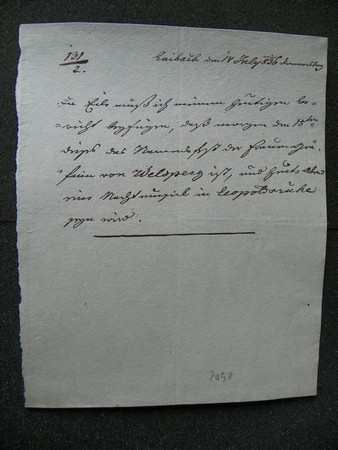 131
2.
Laibach den 14 July 836 Donnerstag
In Eile muß ich meinem heutigen Be-
richt beyfügen, daß morgen den 15ten
dieß das Namensfest der Frauen Grä-
finn von Welsperg ist, und heute Abend
eine Nachtmusick in Leopoldsruhe
seyn wird.
7050